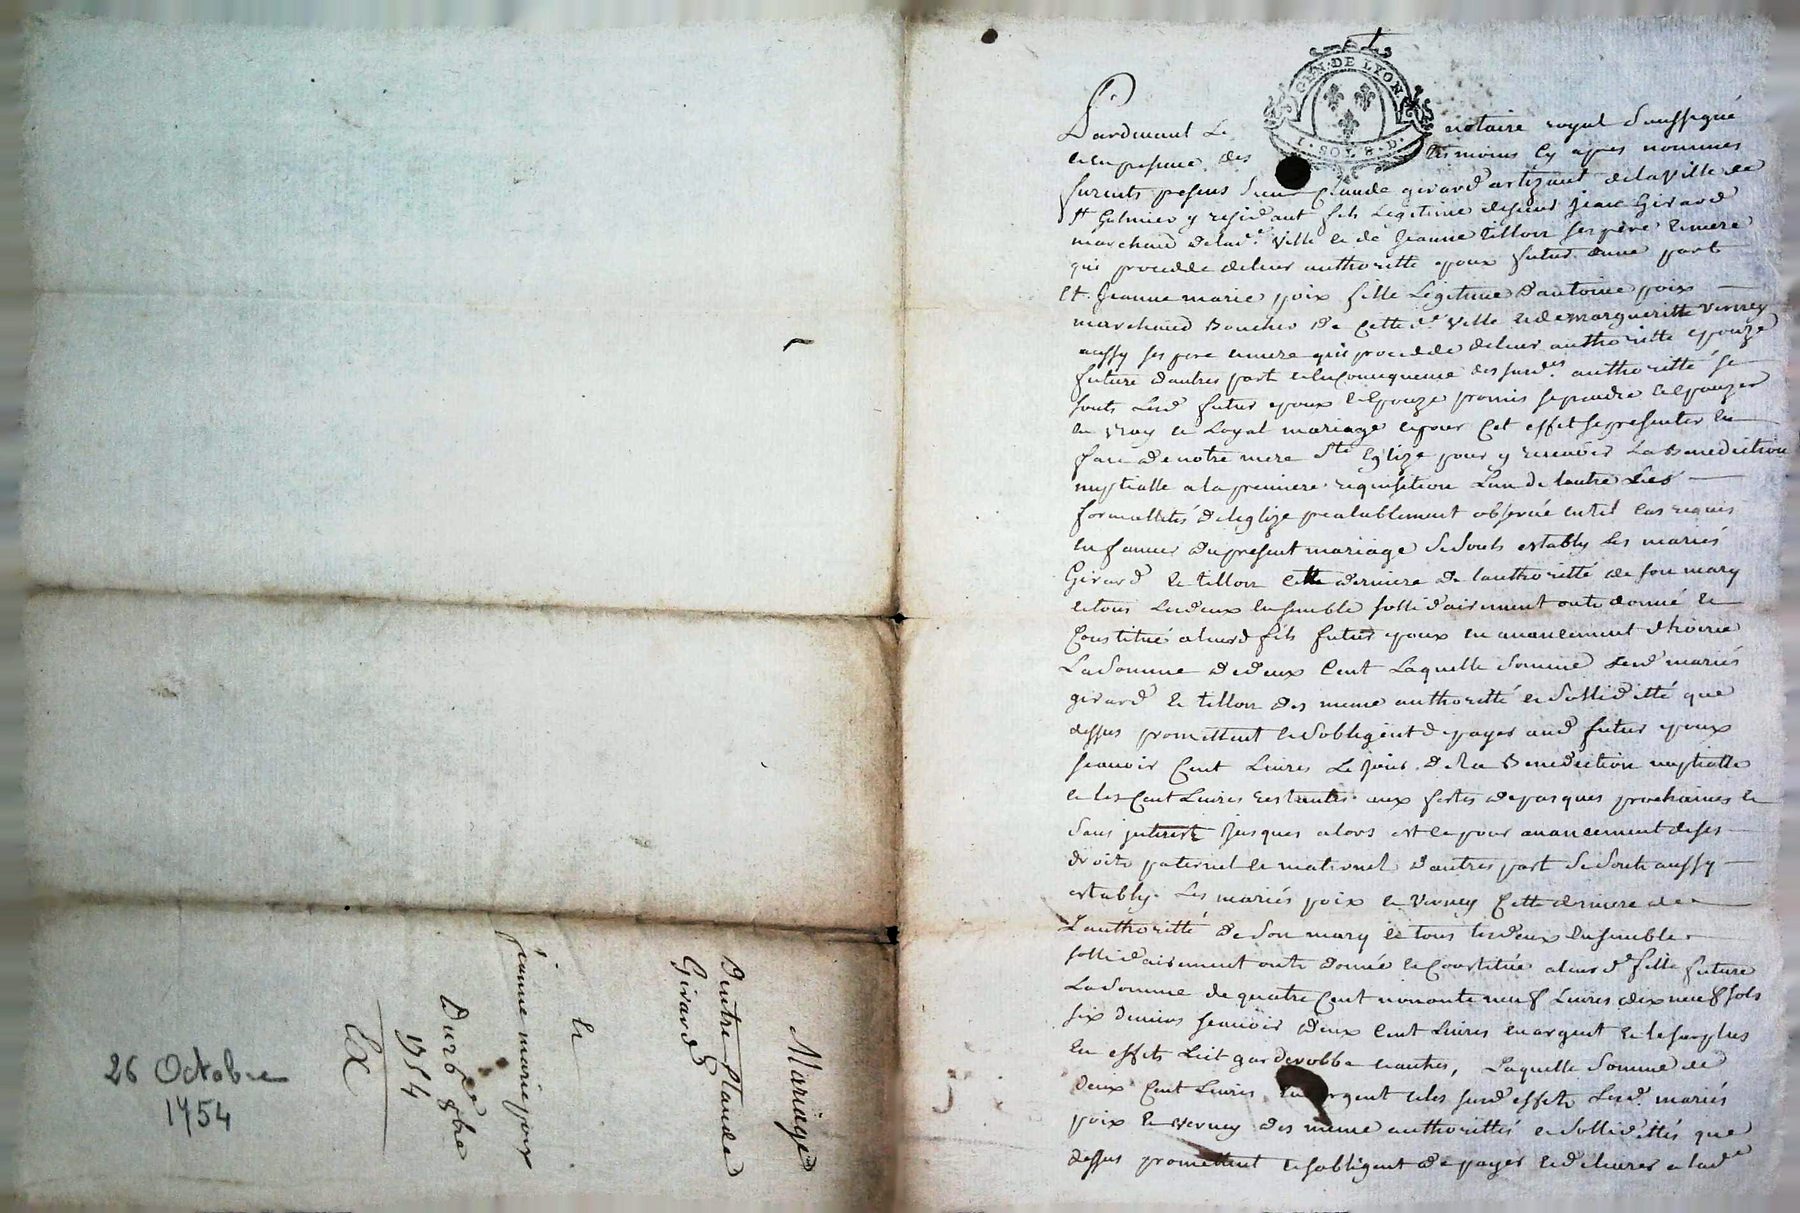 GEN. DE LYON
1. SOL 8. D.
Pardevant Le notaire royal Soussigné
et en presence des tesmoins cy apres nommes
furents presens Sieur Claude girard artizant de la ville de
St Galmier y residant fils Legitime de sieur Jean Girard
marchand de lad.e ville et de Jeanne tillon ses pere et mere
qui procedde de leur authoritté epoux futur d'une part
Et Jeanne marie poix fille Legitime d'antoine poix
marchand Boucher de cette d.e ville et de margueritte verney
aussy ses pere et mere qui procedde de leur authoritté epouze
future d'autres part et en consequence des susd.es authoritté se
sonts Lesd futur epoux et epouze promis se prendre et epouzer
en vray et Loyal mariage et pour cet effet se presenter en
face de notre mere Ste Eglize pour y recevoir La Benediction
nuptialle a la premiere requisition L'un de lautre Les
formallités de leglize prealablement observé en tel cas requis
en faveur du present mariage se sonts establis les mariés
Girard et tillon cette derniere de l'authoritté de son mary
et tous Les deux ensemble sollidairement onts donné et
Constitué a leurd fils futur epoux en avancement d'hoirie
La somme de deux Cent Laquelle somme Lesd mariés
girard et tillon des meme authoritté et sollidité que
dessus promettent et s'obligent de payer aud futur epoux
scavoir Cent Livres Le jour de la Benediction nuptialle
et les Cent Livres restantes aux festes de pasques prochaines et
sans interest jusques alors et ce pour avancement de ses
droits paternel et maternel d'autres part se sonts aussy
establis Les mariés poix et verney Cette derniere de
L'authoritté de son mary et tous les deux ensemble
sollidairement onts donné et Constitué a leurd.e fille future
La somme de quatre Cent nonante neuf Livres dix neuf sols
six deniers scavoir deux Cent Livres en argent et le surplus
en effets Lit garderobbe et autres, Laquelle somme de
deux Cent Livres en argent et les susd effets Lesd. mariés
poix et verney des meme authorittés et sollidittés que
dessus promettent et s'obligent de payer et delivrer a lad.e
Mariage
D'entre Claude
Girard
et
jeanne marie poix
Du 26e 8bre
1754
Ex
26 Octobre
1754